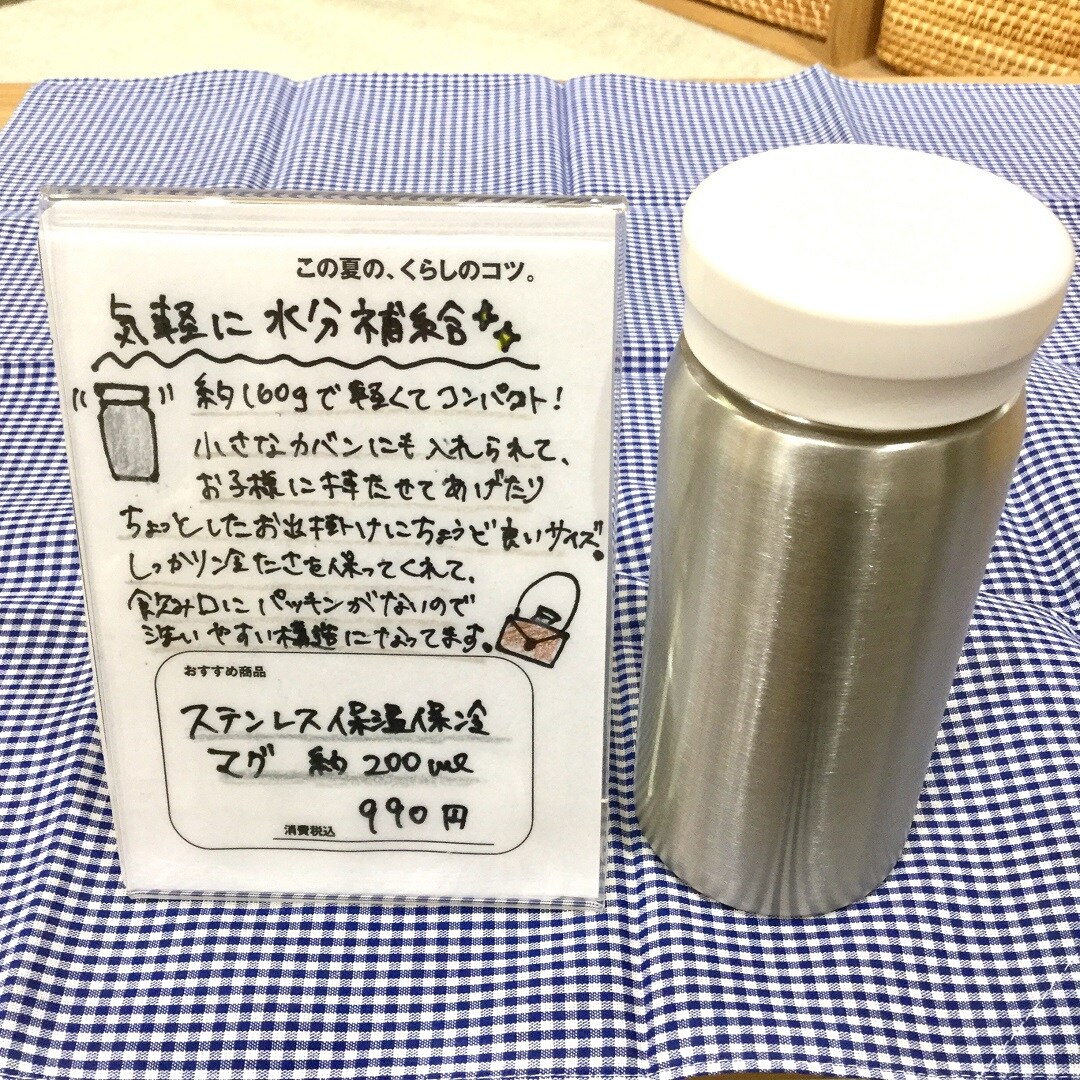 この夏の、くらしのコツ。
気軽に水分補給
約160gで軽くてコンパクト！
小さなカバンにも入れられて、
お子様に持たせてあげたり
ちょっとしたお出掛けにちょうど良いサイズ。
しっかり冷たさを保ってくれて、
飲み口にパッキンがないので
洗いやすい構造になってます。
おすすめ商品
ステンレス保温保冷
マグ 約200ml
消費税込 990円